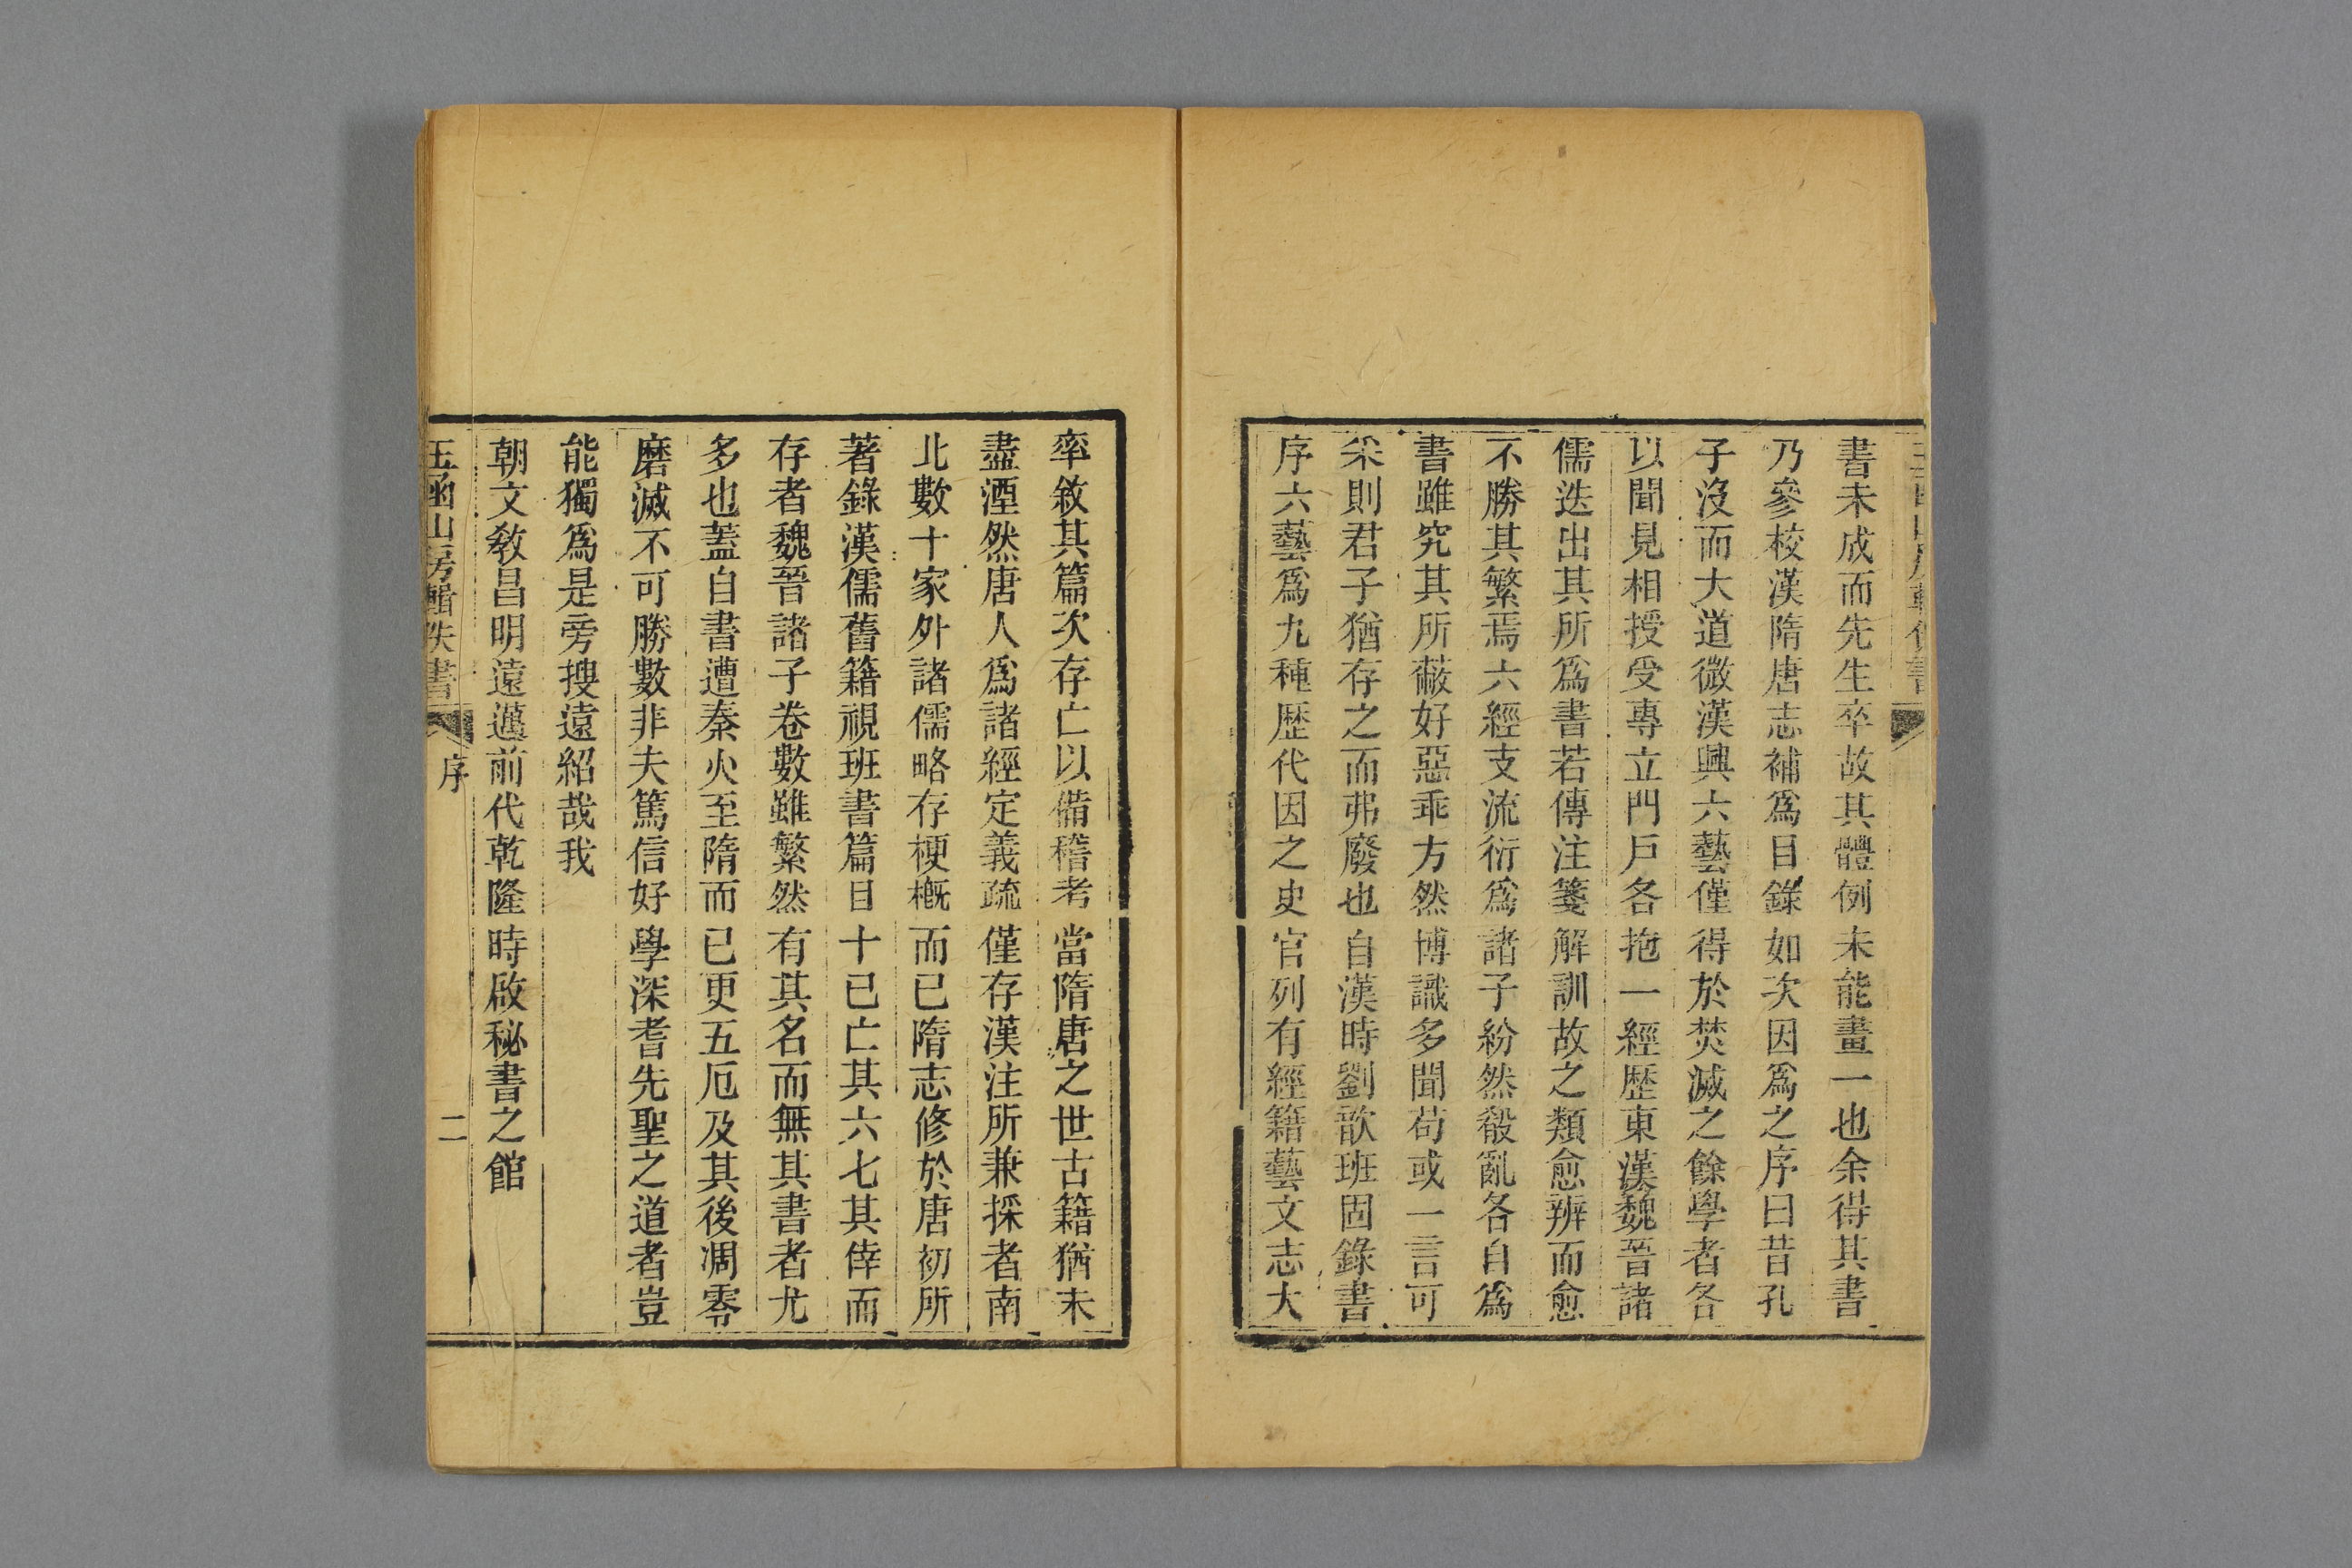 書未成而先生卒故其體例未能畫一也余得其書
乃參校漢隋唐志補爲目錄如次因爲之序曰昔孔
子沒而大道微漢興六藝僅得於焚滅之餘學者各
以聞見相授受專立門戶各抱一經歷東漢魏晉諸
儒迭出其所爲書若傳注箋解訓故之類愈辨而愈
不勝其繁焉六經支流衍爲諸子紛然殽亂各自爲
書雖究其所蔽好惡乖方然博識多聞苟或一言可
采則君子猶存之而弗廢也自漢時劉歆班固錄書
序六藝爲九種歷代因之史官列有經籍藝文志大
率敘其篇次存亡以備稽考當隋唐之世古籍猶未
盡湮然唐人爲諸經定義疏僅存漢注所兼採者南
北數十家外諸儒略存梗概而已隋志修於唐初所
著錄漢儒舊籍視班書篇目十已亡其六七其倖而
存者魏晉諸子卷數雖繁然有其名而無其書者尤
多也蓋自書遭秦火至隋而已更五厄及其後凋零
磨滅不可勝數非夫篤信好學深耆先聖之道者豈
能獨爲是旁搜遠紹哉我
朝文敎昌明遠邁前代乾隆時啟秘書之館
玉函山房輯佚書 序 二